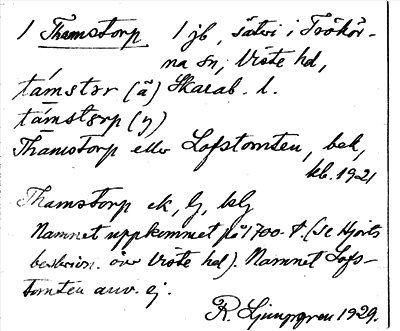 1 Thamstorp 1 jb, säteri i Trökör-
na sn, Viste hd,
támstɔr (ä) Skarab. l.
támstɛrp (y)
Thamstorp eller Lofstomten, bek,
kb. 1921
Thamstorp ek, lj, klg
Namnet uppkommet på 1700-t. (Se Hjorts
beskrivn. över Viste hd). Namnet Lofs-
tomten anv. ej.
R. Ljunggren 1929.